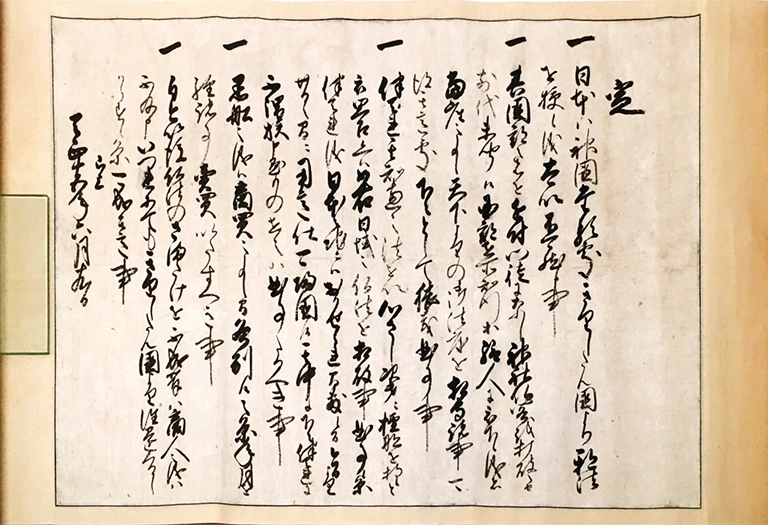 定
一 日本ハ神国たる処きりしたん国より邪法
を授候儀太以不可然候事
一 其国郡之者を近付門徒になし神社仏閣を打破之由
前代未聞候国郡在所知行等給人に被下候儀者
当座之事候天下よりの御法度を相守諸事可
得其意処下々として猥義曲事事
一 伴天連其知恵之法を以心さし次第ニ檀那を持候と
被思召候へハ如右日域之仏法を相破事曲事候条
伴天連儀日本之地ニハおかせられ間敷候間今日より
廿日之間ニ用意仕可帰国候其中に下々伴天連に
不謂族申懸もの在之ハ曲事たるへき事
一 黒船之儀ハ商買之事候間各別に候之条年月を
経諸事売買いたすへき事
一 自今以後仏法のさまたけを不成輩ハ商人之儀ハ
不及申いつれにてもきりしたん国より往還くるし
からす候条可成其意事
已上
天正十五年六月十九日